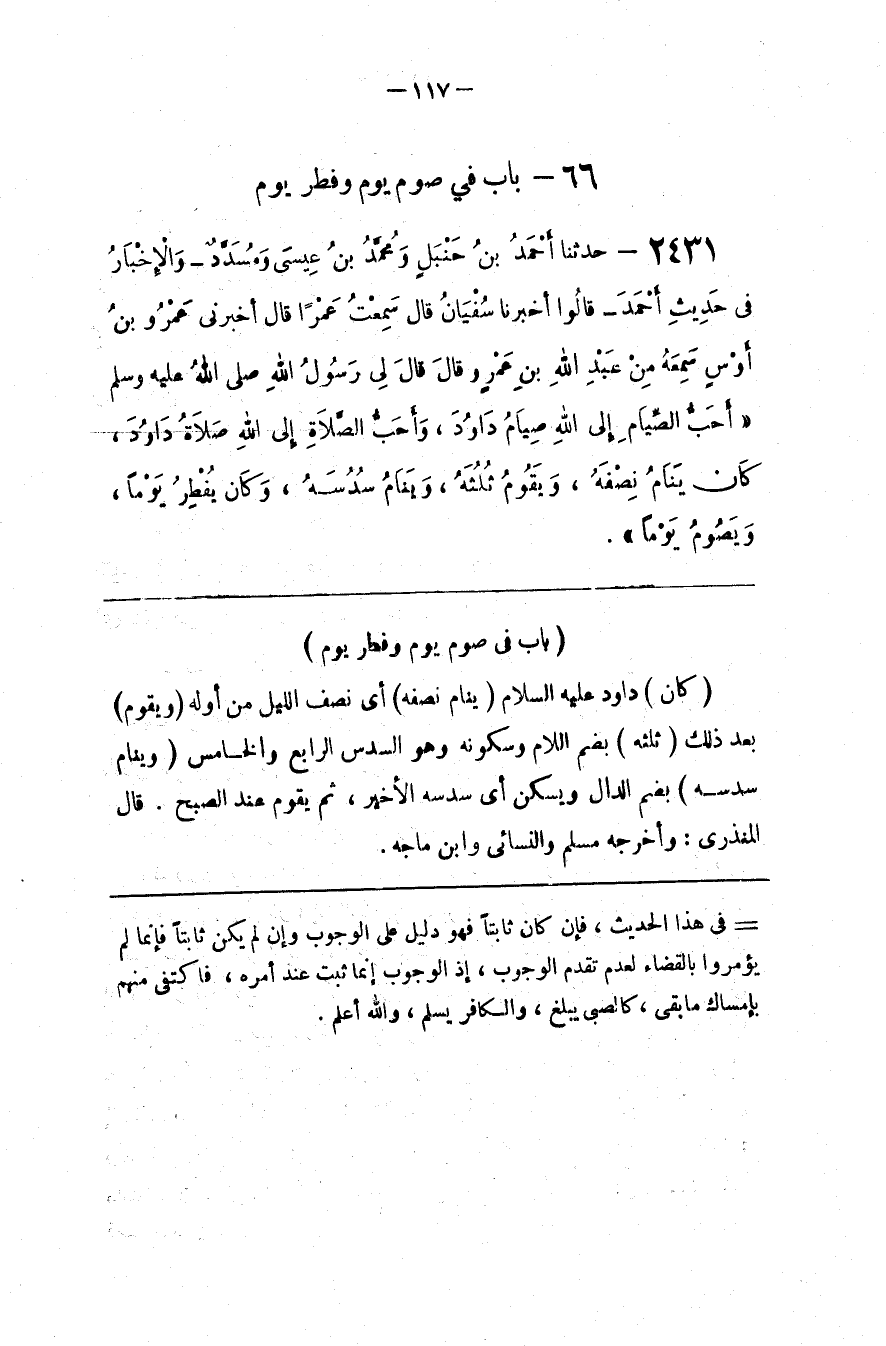 — ١١٧ —
٦٦ — باب في صوم يوم وفطر يوم
٢٤٣١ — حدثنا أَحْمَدُ بنُ حَنْبَلٍ وَمُحمَّدُ بنُ عِيسَى وَمُسَدَّدٌ ــ وَالْإِخْبَارُ
فى حَدِيثِ أَحْمَدَ ــ قالُوا أخبرنا سُفْيَانُ قال سَمِعْتُ عَمْرًا قال أخبرنى عَمْرُو بنُ
أَوْسٍ سَمِعَهُ مِنْ عَبْدِ اللهِ بنِ عَمْرٍو قالَ قالَ لِى رَسُولُ اللهِ صلى اللهُ عليه وسلم
« أَحَبُّ الصِّيَامِ إلى اللهِ صِيَامُ دَاوُدَ ، وَأَحَبُّ الصَّلَاةِ إلى اللهِ صَلَاةُ دَاوُدَ ،
كَان يَنَامُ نِصْفَهُ ، وَيَقُومُ ثُلُثَهُ ، وَيَنَامُ سُدُسَهُ ، وَكَان يُفْطِرُ يَوْماً ،
وَيَصُومُ يَوْماً » .
( باب فى صوم يوم وفطر يوم )
( كان ) داود عليه السلام ( ينام نصفه) أى نصف الليل من أوله (ويقوم)
بعد ذلك ( ثلثه ) بضم اللام وسكونه وهو السدس الرابع والخامس ( وينام
سدسه ) بضم الدال ويسكن أى سدسه الأخير ، ثم يقوم عند الصبح . قال
المنذرى : وأخرجه مسلم والنسائى وابن ماجه .
= فى هذا الحديث ، فإن كان ثابتاً فهو دليل على الوجوب وإن لم يكن ثابتاً فإنما لم
يؤمروا بالقضاء لعدم تقدم الوجوب ، إذ الوجوب إنما ثبت عند أمره ، فاكتفى منهم
بإمساك مابقى ، كالصبى يبلغ ، والكافر يسلم ، والله أعلم .